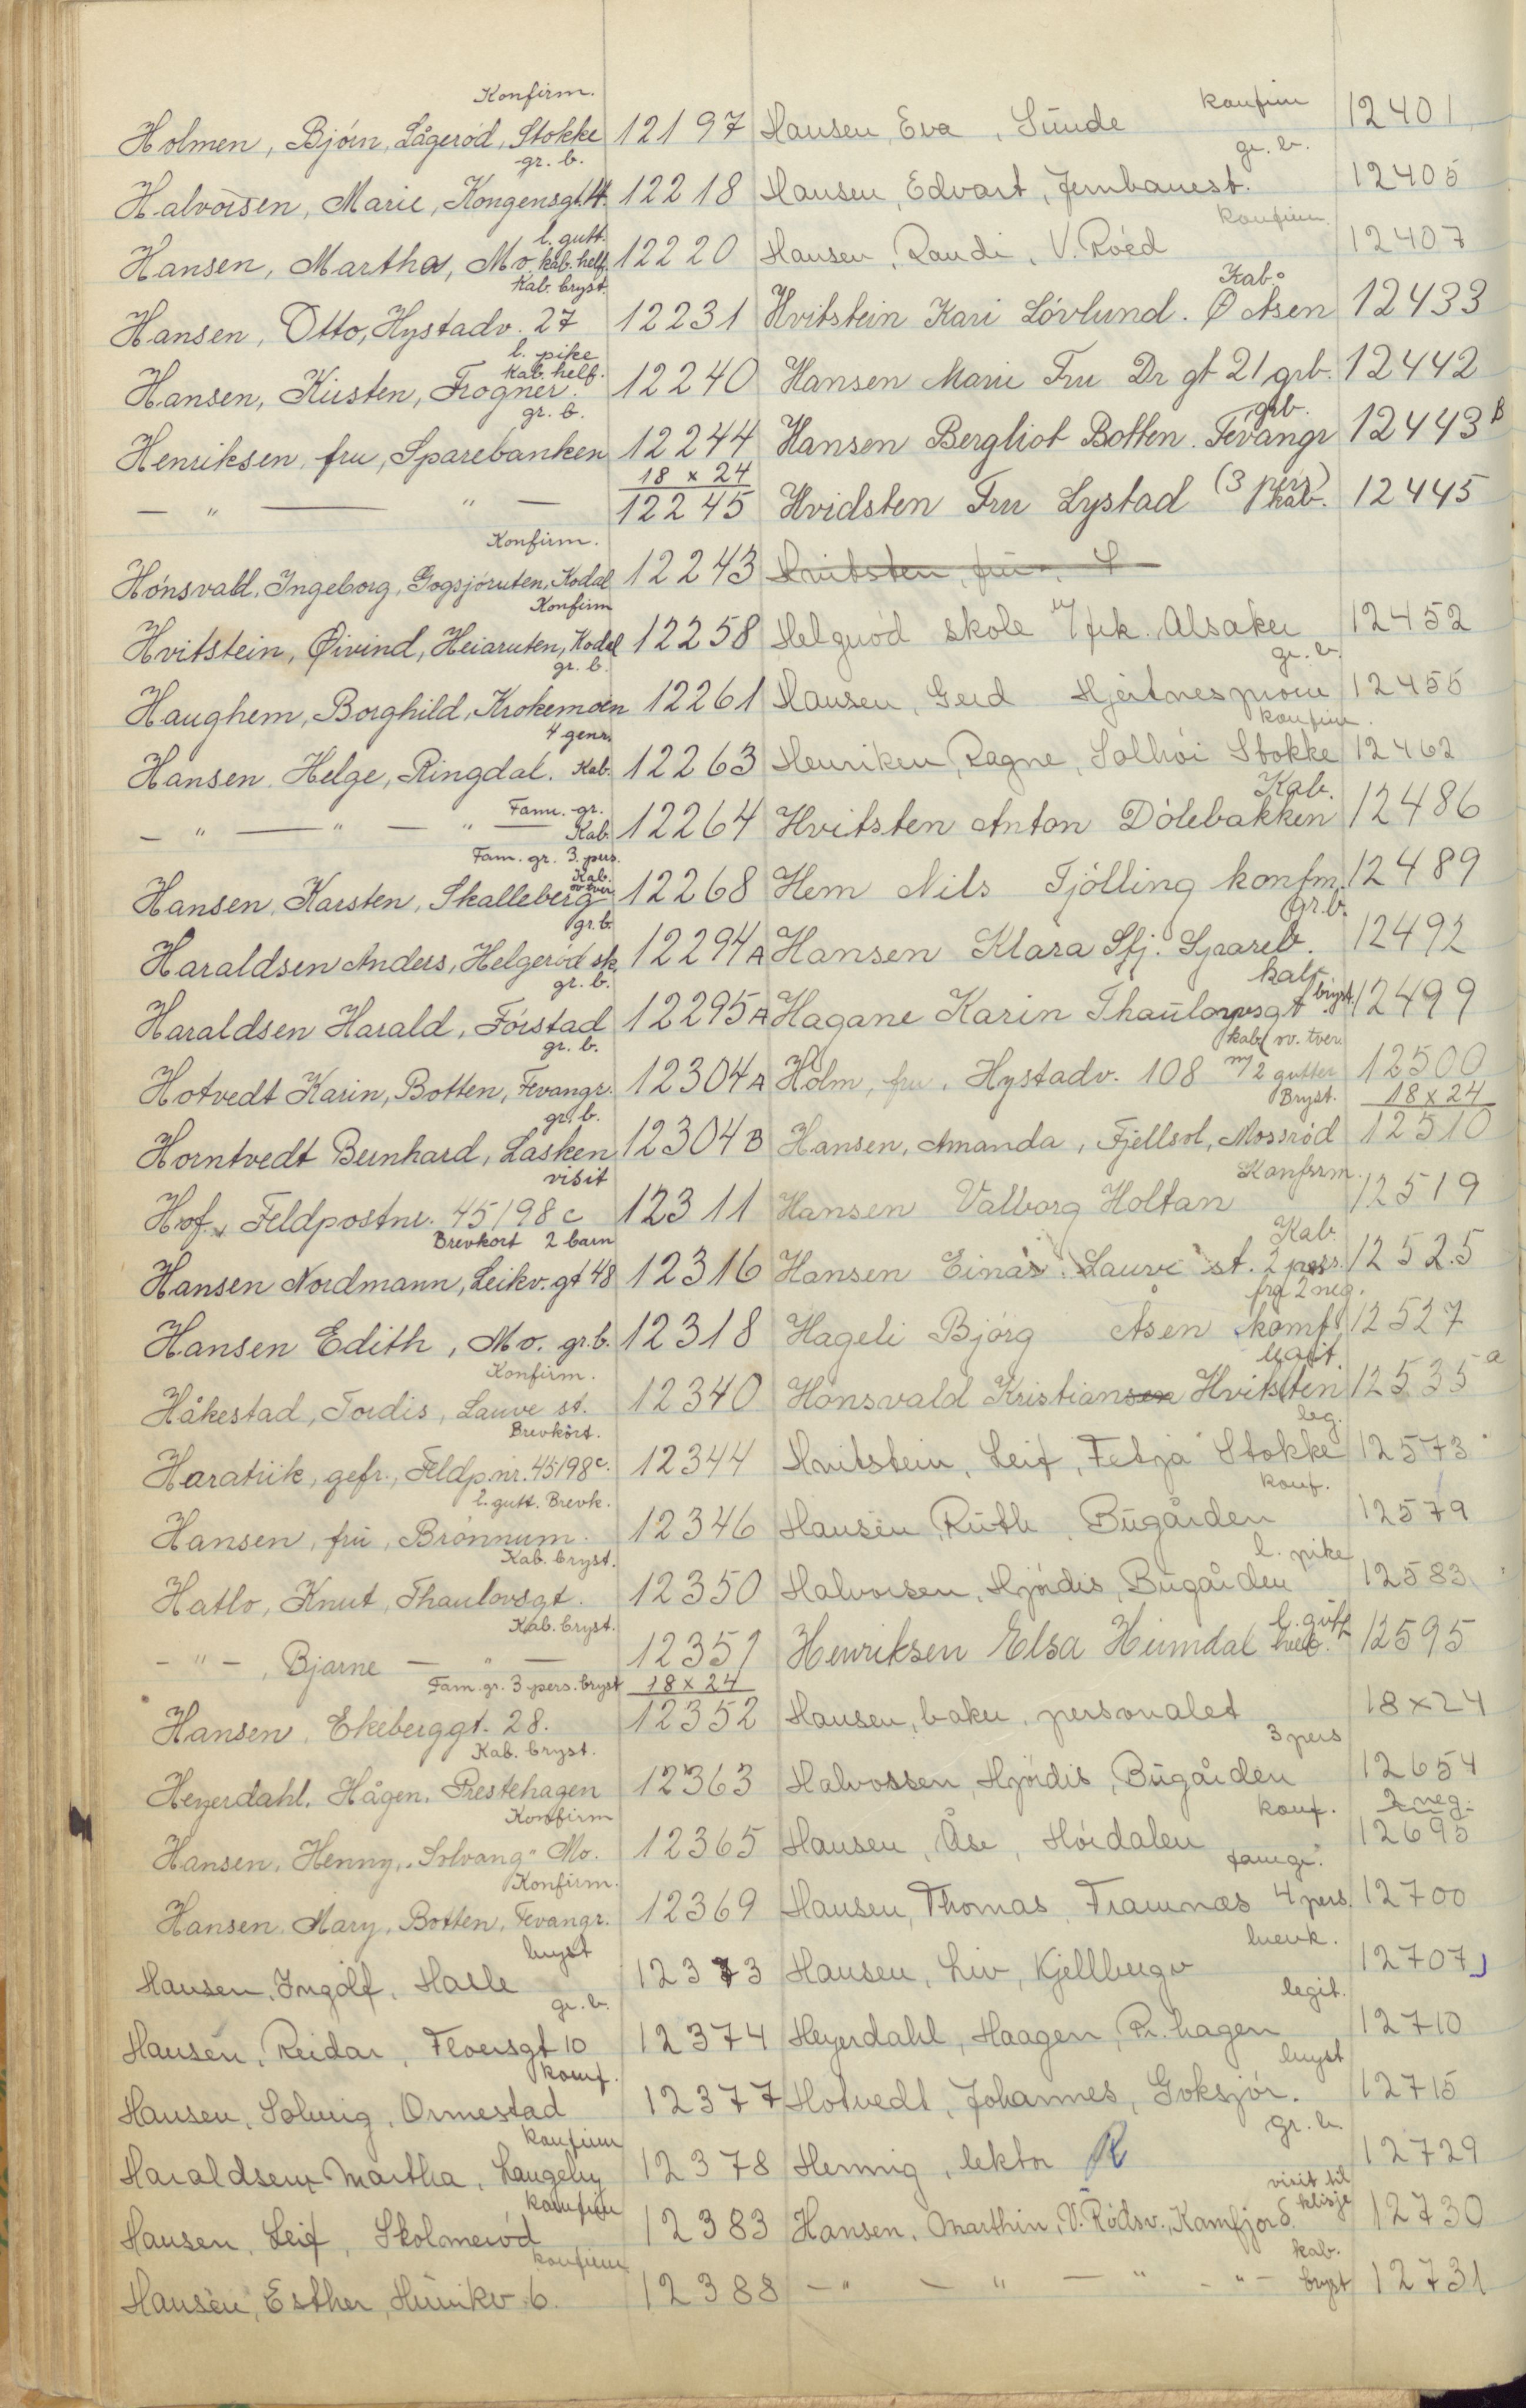 Konfirm.
Holmen, Bjørn, Lågerød, Stokke 12197
gr. b.
Halvorsen, Marie, Kongensgt. 12218
l. gutt.
Hansen, Martha, Mo. kab. helf. 12220
Kab. bryst.
Hansen, Otto, Hystadv. 27 12231
l. pike
kab. helf.
Hansen, Kirsten, Frogner. 12240
gr. b.
Henriksen, fru, Sparebanken 12244
18 x 24
— " — " — 12245
Konfirm.
Hónsvald, Ingeborg, Gogsjøruten, Kodal 12243
Konfirm
Hvitstein, Øivind, Heiaruten, Kodal 12258
gr. b.
Haughem, Borghild, Krokemoen 12261
4 genr.
Hansen, Helge, Ringdal. Kab. 12263
Fam. gr.
— " — " — " — Kab. 12264
Fam. gr. 3. pers.
Kab.
ov tver
Hansen, Karsten, Skalleberg 12268
gr. b.
Haraldsen Anders, Helgerød sk. 12294 A
gr. b.
Haraldsen Harald, Fórstad 12295 A
gr. b.
Hotvedt Karin, Botten, Fevangr. 12304 A
gr. b.
Horntvedt Bernhard, Lasken 12304 B
visit
Hof., Feldpostnr. 45198 c 12311
Brevkort 2 barn
Hansen Nordmann, Leikv. gt 48 12316
Hansen Edith, Mo. gr. b. 12318
Konfirm.
Håkestad, Tordis, Lauve st. 12340
Brevkort.
Haratiik, gefr., Feldp.nr. 45198 c. 12344
l. gutt. Brevk.
Hansen, fru, Brønnum. 12346
Kab. bryst.
Hatlo, Knut, Thaulovsgt. 12350
Kab. bryst.
- " - , Bjarne — " — 12351
Fam. gr. 3 pers. bryst 18 x 24
Hansen, Ekeberggt. 28. 12352
Kab. bryst.
Heyerdahl. Hågen. Prestehagen 12363
Konfirm
Hansen, Henny, "Solvang" Mo. 12365
Konfirm.
Hansen, Mary, Botten, Fevangr. 12369
bryst
Hansen, Ingolf, Hasle 12373
gr. b.
Hansen, Reidar, Floersgt 10 12374
konf.
Hansen, Solveig, Ormestad 12377
konfirm
Haraldsen Martha, Langeby 12378
konfirm
Hansen, Leif, Skolmerød 12383
konfirm
Hansen, Esther, Hunikv. 6. 12388
konfirm
Hansen, Eva, Sunde 12401
gr. b.
Hansen, Edvart, Jernbanest. 12405
konfirm
Hansen, Randi, V. Røed 12407
Kab.
Hvitstein Kari Lóvlund. Ø Åsen 12433
Hansen Marie Fru Dr gt 21 grb. 12442
grb.
Hansen Bergliot Botten. Fevangr 12443 B
Hvidsten Fru Lystad (3 pers) kab. 12445
Hvitsten, fru
Helgerød skole v/ frk. Alsaker 12452
gr. b.
Hansen, Gerd Hjertnesprom 12455
konfirm.
Henriken, Ragne, Solhøi Stokke 12462
Kab.
Hvitsten Anton Dólebakken 12486
Hem Nils Tjólling konfm. 12489
gr.b.
Hansen Klara Sfj. Spareb. 12492
kab. bryst.
Hagane Karin Thaulowsgt 12499
kab. ov. tver.
Holm, fru, Hystadv. 108 m/ 2 gutter 12500
Bryst. 18 x 24
Hansen, Amanda, Fjellsol, Mossrød 12510
Konfirm.
Hansen Valborg Holtan 12519
Kab.
Hansen Einar. Lauve st. 2 pers. 12525
fra 2 neg.
Hageli Bjórg Åsen komf. 12527
legit.
Honsvald Kristiansen Hvitsten 12535 a
leg.
Hvitstein, Leif, Fetja Stokke 12573
konf.
Hansen, Ruth, Bugården 12579
l. pike
Halvorsen, Hjórdis, Bugården 12583
l. gutt
Henriksen Elsa Heimdal helf. 12595
Hansen, baker, personalet 18 x 24
3 pers
Halvossen, Hjórdis, Bugården 12654
konf. 2 neg.
Hansen, Åse, Hórdalen 12695
famgr.
Hansen, Thomas, Framnæs 4 pers. 12700
brevk.
Hansen, Liv, Kjellbergv 12707
legit.
Heyerdahl, Haagen, Pr. hagen 12710
bryst
Hotvedt, Johannes, Goksjór. 12715
gr. b.
Hennig, lektor R 12729
visit til
klisje
Hansen, Marthin, V. Rødsv., Kamfjord. 12730
kab.
— " — " — " — " — bryst 12731